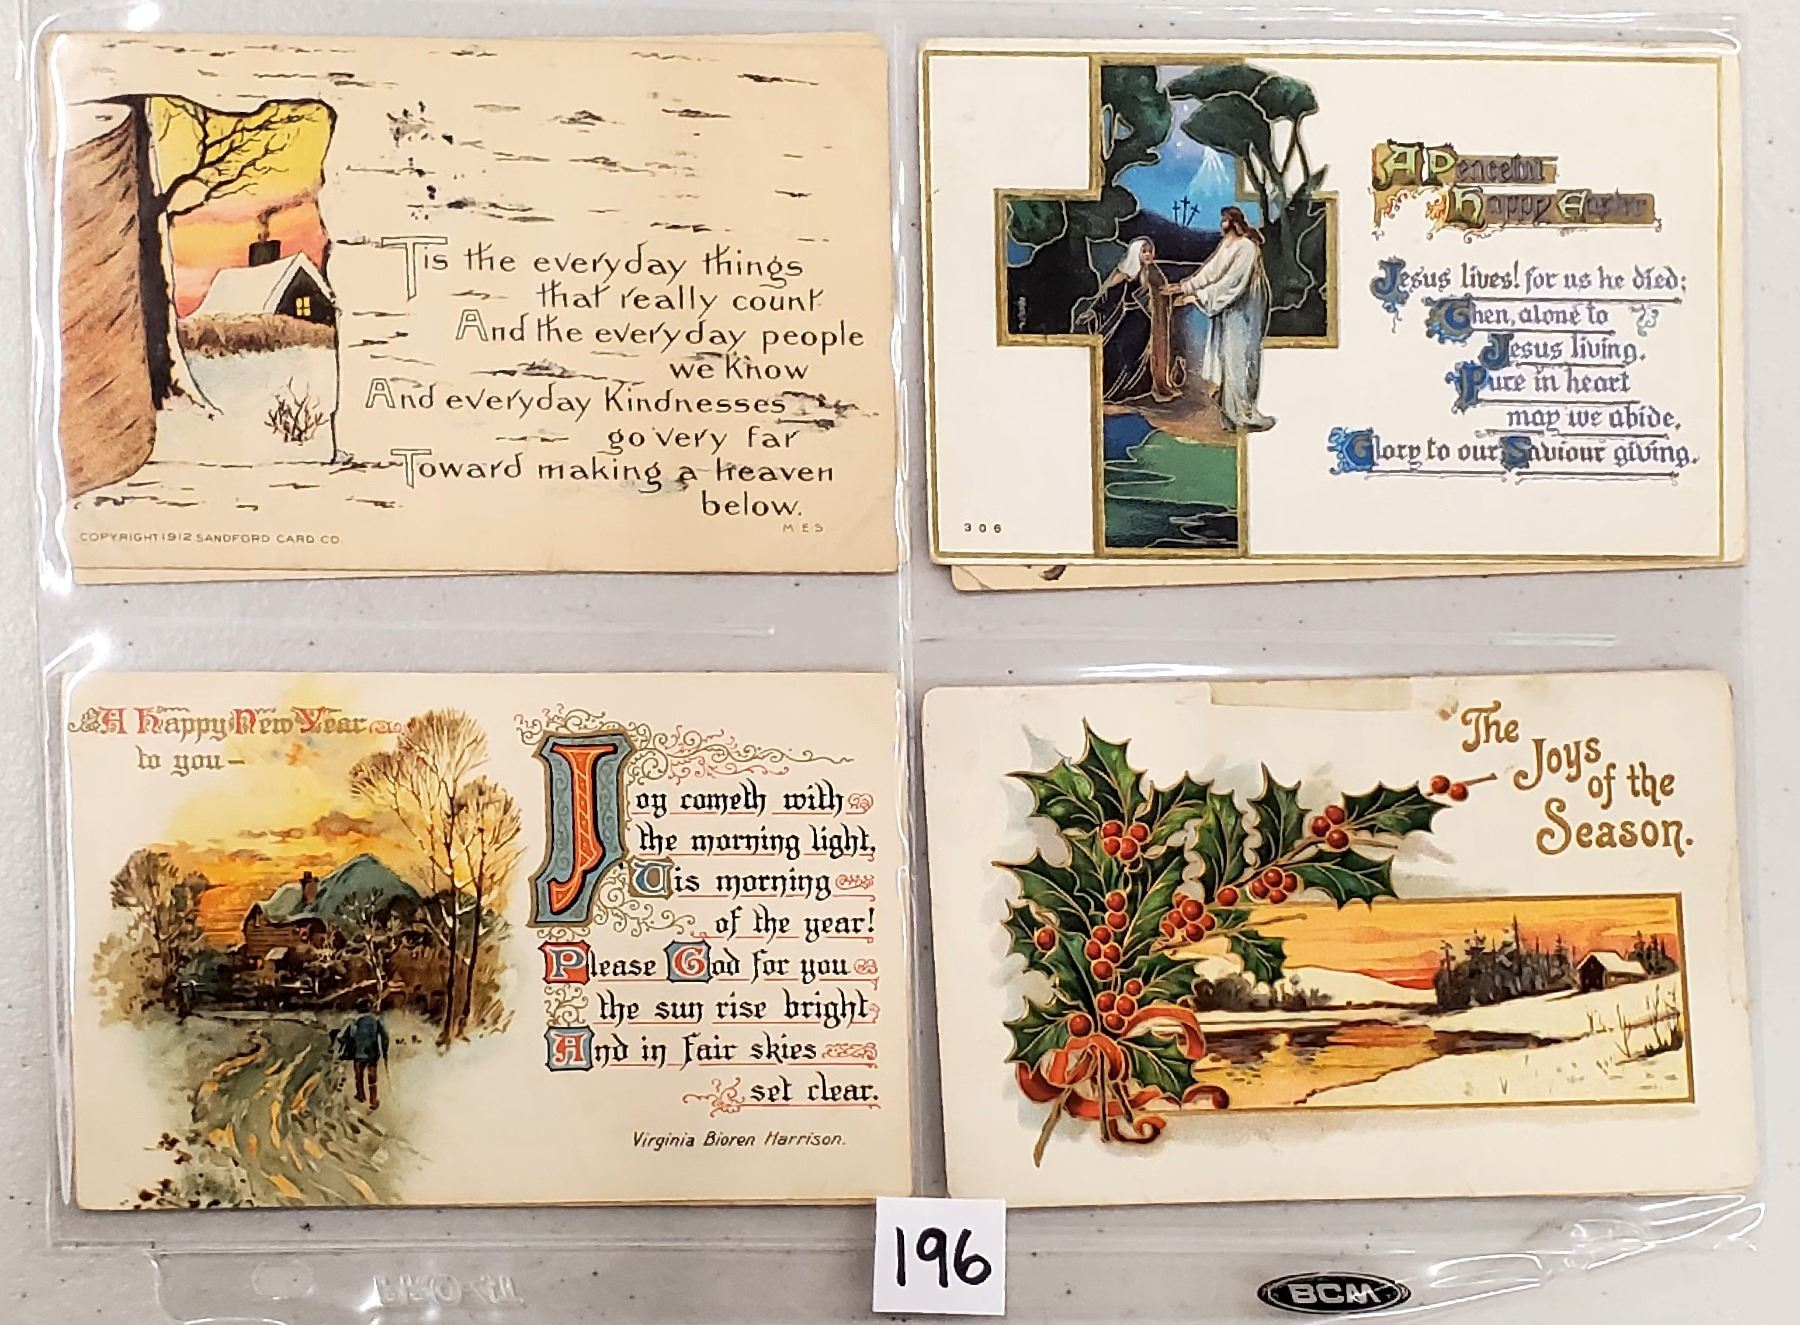 Tis the everyday things
that really count
And the everyday people
we know
And everyday Kindnesses
go very far
Toward making a heaven
below.
M.E.S
COPYRIGHT 1912 SANDFORD CARD CO.
A Peaceful
Happy Easter
Jesus lives! for us he died;
Then, alone to
Jesus living,
Pure in heart
may we abide,
Glory to our Saviour giving.
306
A Happy New Year
to you-
Joy cometh with
the morning light,
Tis morning
of the year!
Please God for you
the sun rise bright
And in fair skies
set clear.
Virginia Bioren Harrison.
The
Joys
of the
Season.
196
PRO-4T
BCM